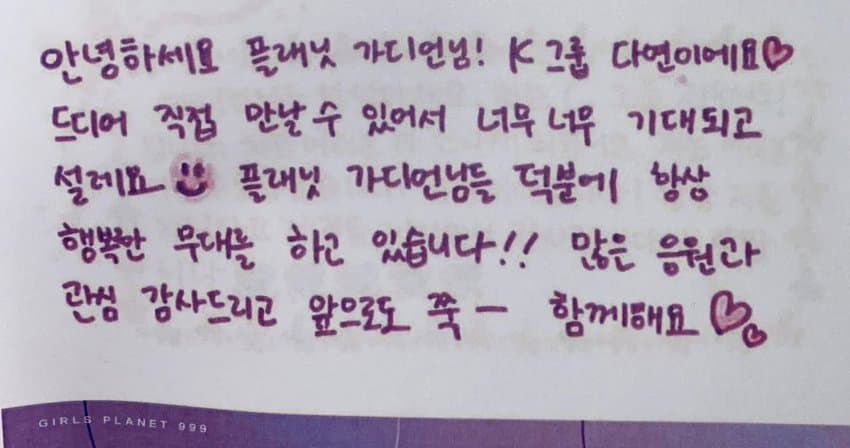 안녕하세요 플래닛 가디언님! K그룹 다연이에요♡
드디어 직접 만날 수 있어서 너무너무 기대되고
설레요 플래닛 가디언님들 덕분에 항상
행복한 무대를 하고 있습니다!! 많은 응원과
관심 감사드리고 앞으로도 쭉ー 함께해요♡♡
GIRLS PLANET 999